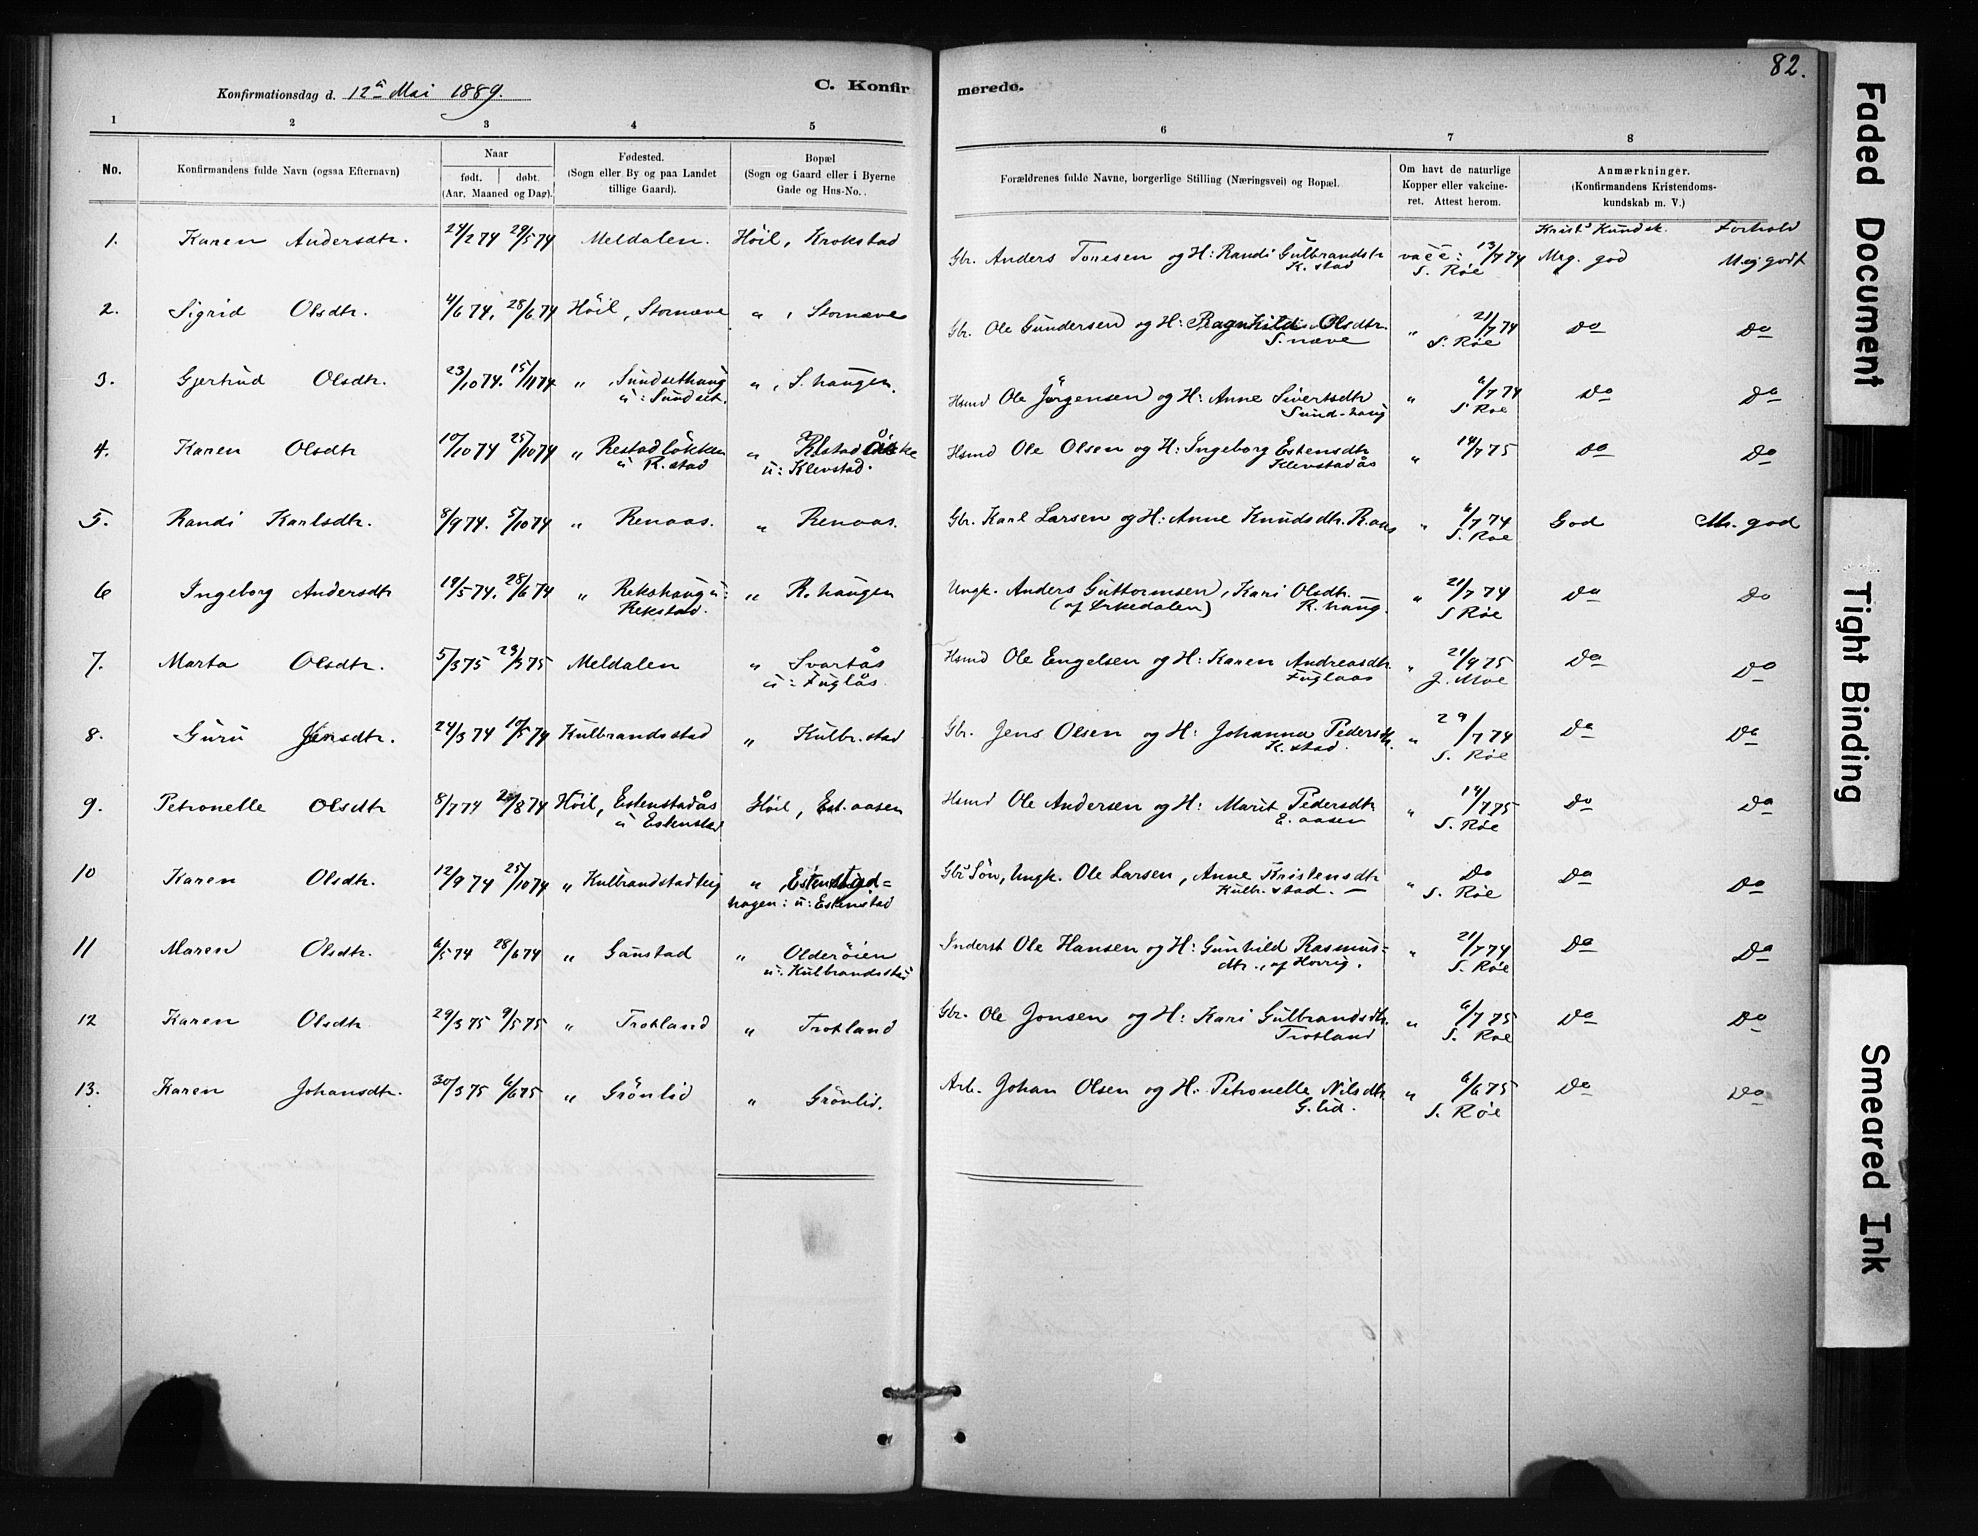 82.
Konfirmationsdag d. 12te Mai 1889.
C. Konfirmerede.
1 2 3 4 5 6 7 8
No. Konfirmandens fulde Navn (ogsaa Efternavn) Naar født. døbt. (Aar. Maaned og Dag). Fødested. (Sogn eller By og paa Landet tillige Gaard). Bopæl (Sogn og Gaard eller i Byerne Gade og Hus-No. Forældrenes fulde Navne, borgerlige Stilling (Næringsvei) og Bopæl. Om havt de naturlige Kopper eller vakcineret. Attest herom. Anmærkninger. (Konfirmandens Kristendomskundskab m. V.)
Krist. Kundsk. Forhold
1. Karen Andersdtr. 24/2 74 29/5 74 Meldalen. Höil, Krokstad Gbr. Anders Toresen og H: Randi Gulbrandsdtr K. stad vacc: 13/7 74 S. Röe Meg. god Meg godt
2. Sigrid Olsdtr. 4/6 74. 28/6 74 Höil, Stornæve " , Stornæve Gbr. Ole Gundersen og H: Ragnhild Olsdtr. S. næve " 21/7 74 S. Röe Do Do
3. Gjertrud Olsdtr. 23/10 74. 15/11 74 " , Sundsethaug u: Sundset. " , S. haugen. Hsmd Ole Jörgensen og H: Anne Sivertsdtr Sund-haug " 6/7 74 S Röe Do Do
4. Karen Olsdtr 10/10 74 25/10 74 " Restadlökken u R. stad " u: Klevstad. Hsmd Ole Olsen og H: Ingeborg Estensdtr Klevstadås " 14/7 75 Do Do
5. Randi Karlsdtr. 8/9 74. 5/10 74 " Renaas. " Renaas. Gbr. Karl Larsen og H: Anne Knudsdtr. R. aas " 6/7 74 S. Röe God M. god
6 Ingeborg Andersdtr 19/5 74. 28/6 74 " Rekshaug u: Rekstad. " R. haugen Ungk. Anders Guttormsen, Kari Olsdtr. (af Orkedalen) R. haug. " 21/7 74 S Röe Do Do
7. Marta Olsdtr. 5/3 75 29/3 75 Meldalen " Svartås u: Fuglås. Hsmd Ole Engelsen og H: Karen Andreasdtr. Fuglaas " 21/9 75 J. Moe Do Do
8. Guru Jensdtr. 24/3 74 10/5 74 Kulbrandsstad " Kulbr. stad Gbr. Jens Olsen og H: Johanna Pedersdtr. K. stad. " 29/7 74 S. Röe Do Do
9. Petronelle Olsdtr 8/7 74 /8 74 Höil, Estenstadås u Estenstad Höil, Est. aasen Hsmd Ole Andersen og H: Marit Pedersdtr E. aasen " 14/7 75 S. Röe Do Do
10 Karen Olsdtr. 12/9 74 25/10 74 " Kulbrandstadteig " , Estenstad= hagen: u: Estenstad Gbr Sön, Ungk. Ole Larsen, Anne Kristensdtr Kulb. stad. " Do S. Röe Do Do
11 Maren Olsdtr. 6/5 74 28/6 74 " Gaustad " Olderöien u: Kulbrandsstad Inderst Ole Hansen og H: Gunhild Rasmus= dtr., af Horrig. " 21/7 74 S. Röe Do Do
12 Karen Olsdtr. 29/3 75 9/5 75 " Trotland " Trotland Gbr. Ole Jonsen og H: Kari Gulbrandsdtr. Trotland " 6/7 75 S. Röe Do Do
13. Karen Johansdtr. 30/3 75 6/6 75 " Grönlid " Grönlid. Arb. Johan Olsen og H: Petronelle Nilsdtr. G. lid. " 6/6 75 S. Röe Do Do
Faded Document
Tight Binding
Smeared Ink